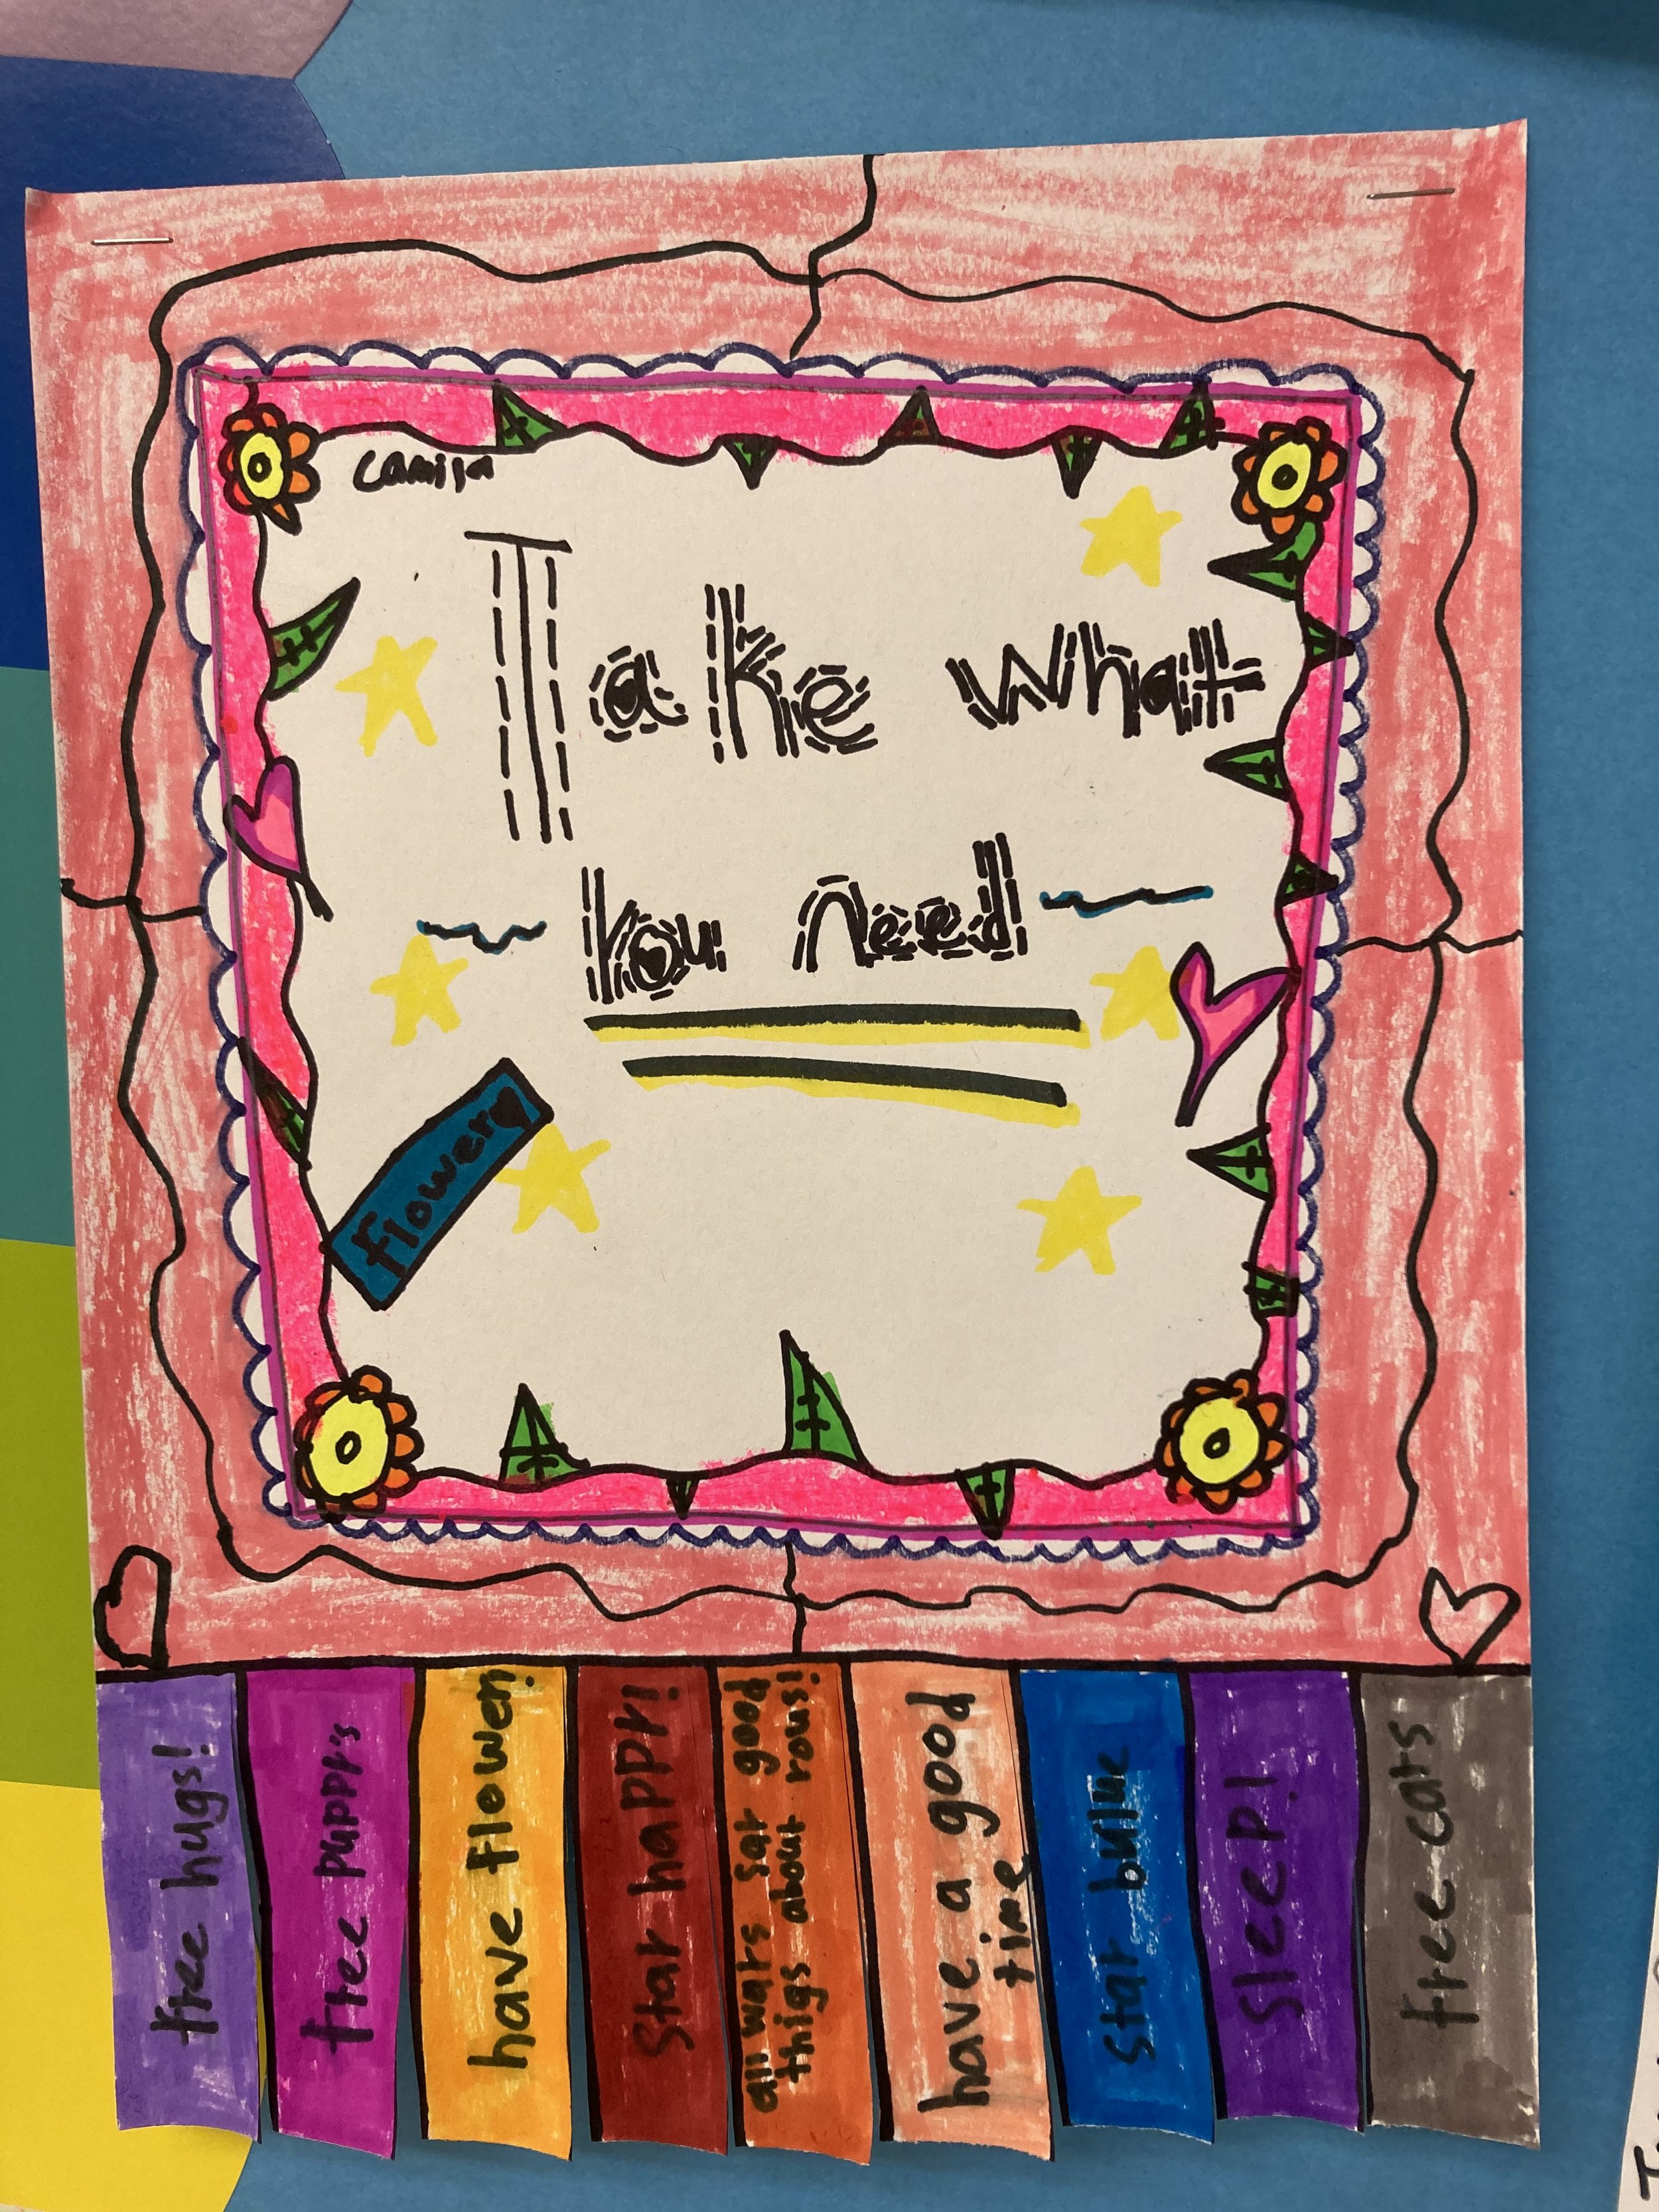 camila
Take what
you need
Flower
free hugs!
free puppy's
have flower!
Stay happy!
all ways say good
thigs about yous!
have a good
time
Stay bulue
Sleep!
free cats